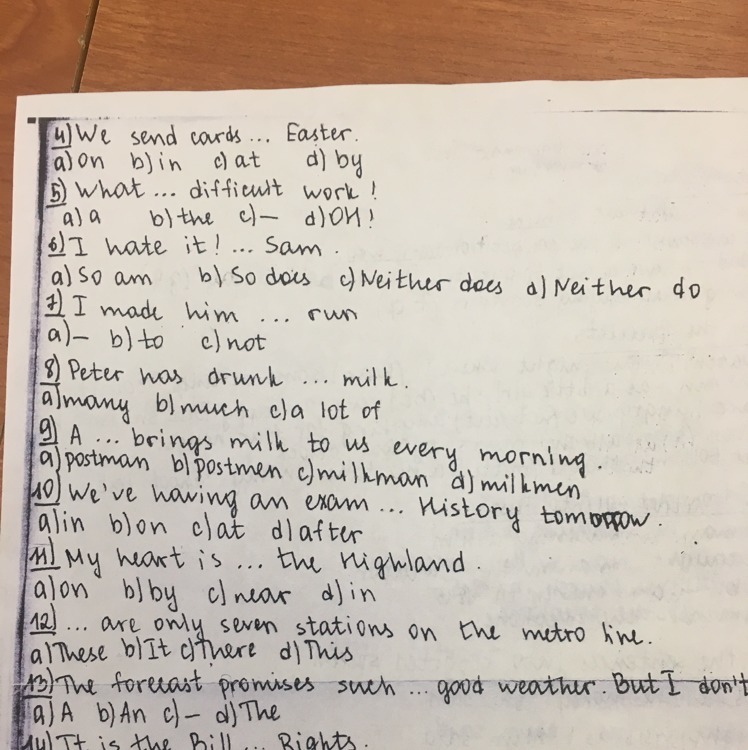 4) We send cards ... Easter.
a) on b) in c) at d) by
5) What ... difficult work!
a) a b) the c) – d) OH!
6) I hate it! ... Sam.
a) So am b) So does c) Neither does d) Neither do
7) I made him ... run
a) – b) to c) not
8) Peter has drunk ... milk.
a) many b) much c) a lot of
9) A ... brings milk to us every morning.
a) postman b) postmen c) milkman d) milkmen
10) We've having an exam ... History tomorrow.
a) in b) on c) at d) after
11) My heart is ... the Highland.
a) on b) by c) near d) in
12) ... are only seven stations on the metro line.
a) These b) It c) There d) This
13) The forecast promises such ... good weather. But I don't
a) A b) An c) – d) The
14) It is the Bill ... Rights.